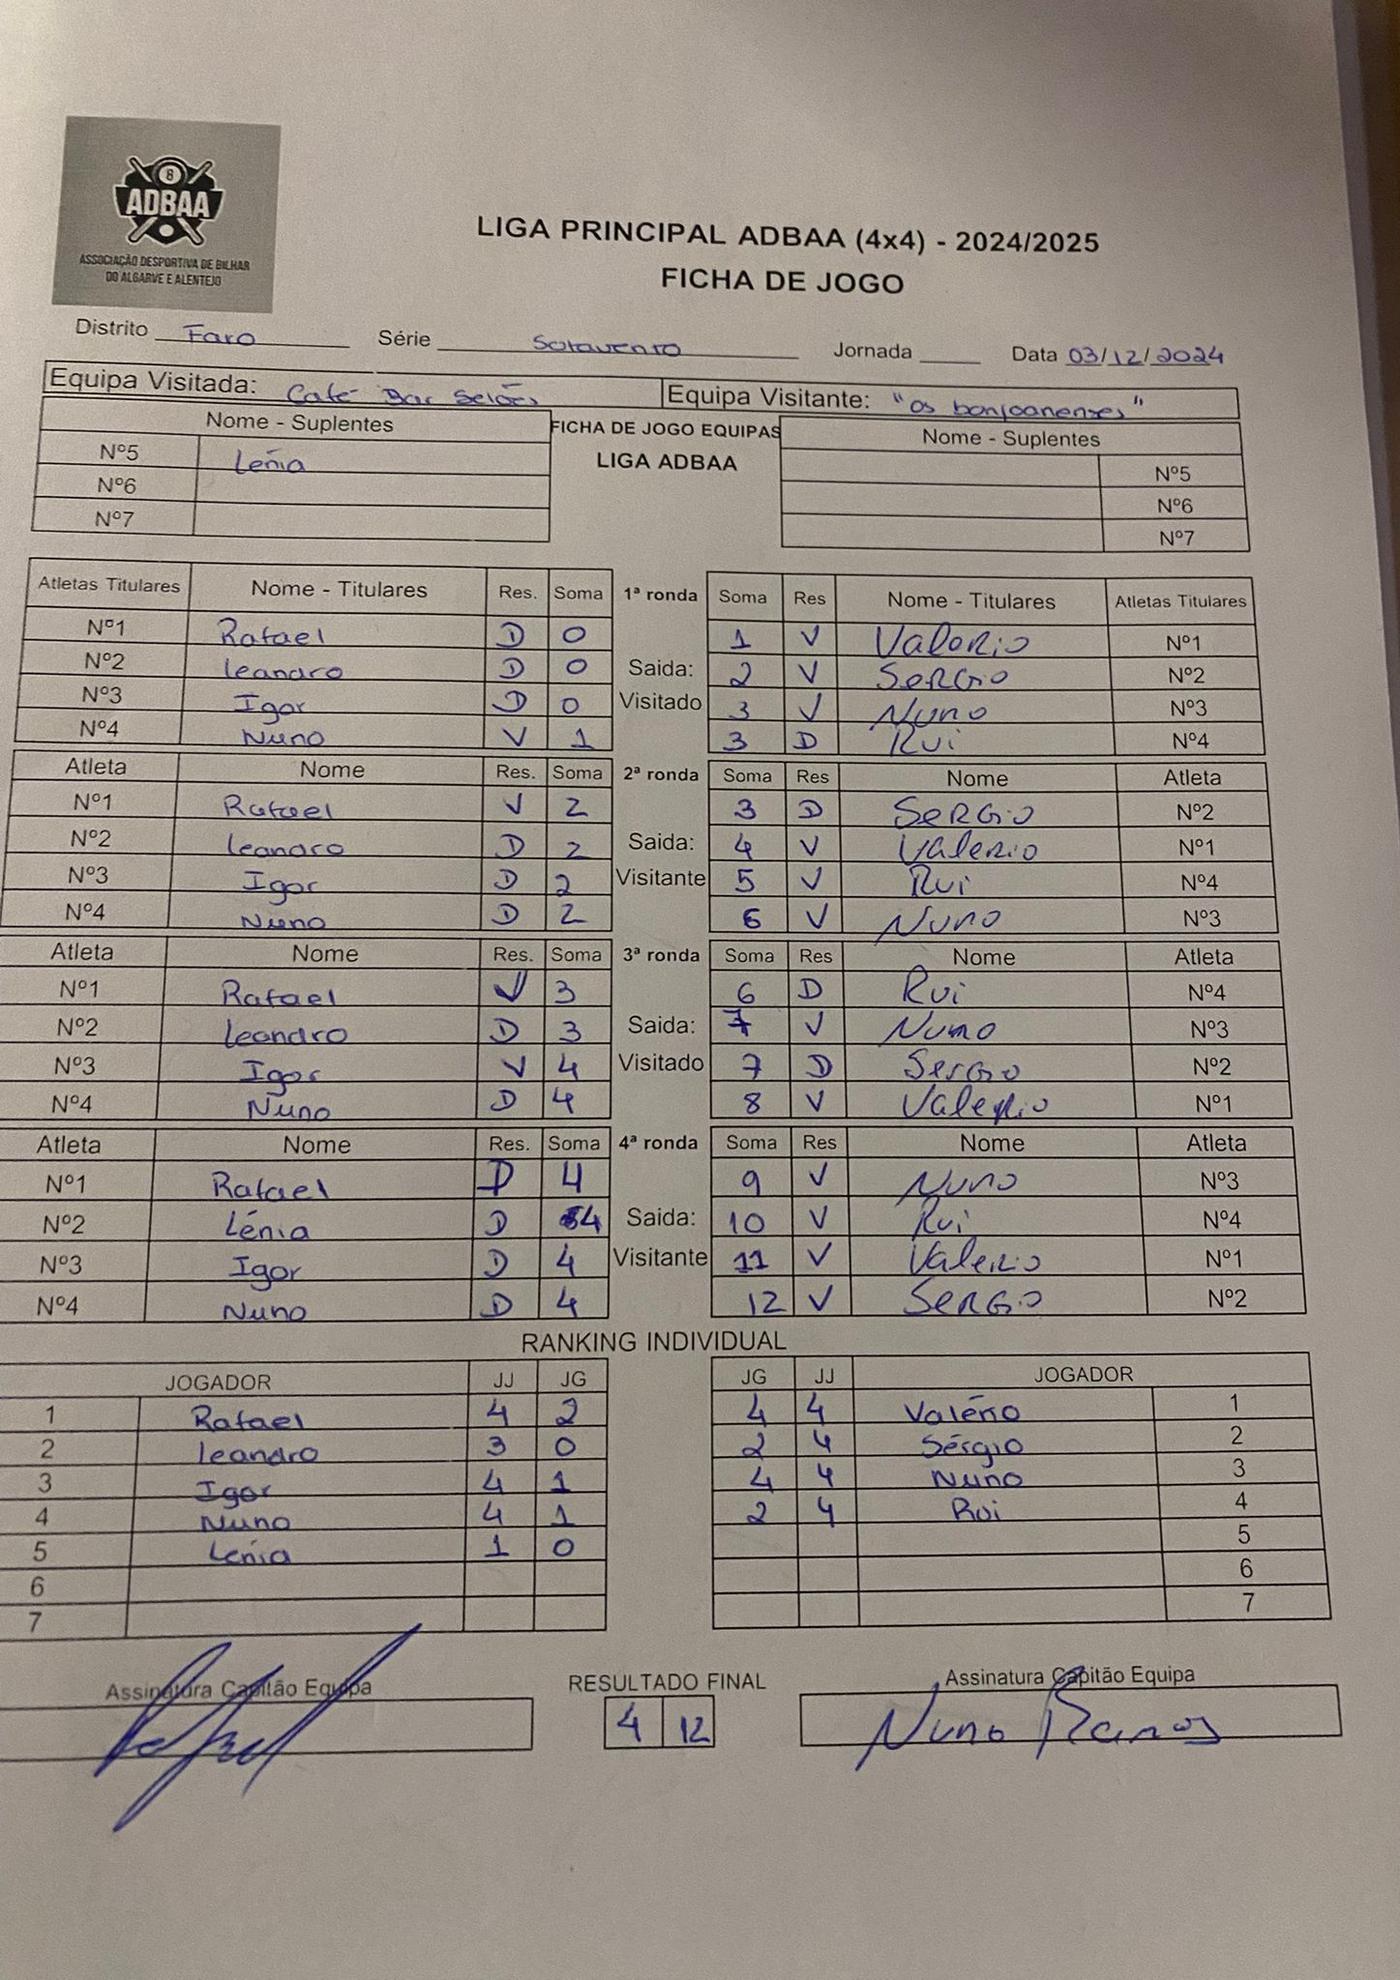 8
ADBAA
ASSOCIAÇÃO DESPORTIVA DE BILHAR
DO ALGARVE E ALENTEJO
LIGA PRINCIPAL ADBAA (4x4) - 2024/2025
FICHA DE JOGO
Distrito Faro Série Sotavento Jornada Data 03/12/2024
Equipa Visitada: Café Bar Seiões Equipa Visitante: "os bonjoanenses"
Nome - Suplentes FICHA DE JOGO EQUIPAS Nome - Suplentes
Nº5 Lénia LIGA ADBAA Nº5
Nº6 Nº6
Nº7 Nº7
Atletas Titulares Nome - Titulares Res. Soma 1ª ronda Soma Res Nome - Titulares Atletas Titulares
Nº1 Rafael D 0 1 V Valerio Nº1
Nº2 leandro D 0 Saida: 2 V Sergio Nº2
Nº3 Igor D 0 Visitado 3 V Nuno Nº3
Nº4 Nuno V 1 3 D Rui Nº4
Atleta Nome Res. Soma 2ª ronda Soma Res Nome Atleta
Nº1 Rafael V 2 3 D SERGIO Nº2
Nº2 leandro D 2 Saida: 4 V Valerio Nº1
Nº3 Igor D 2 Visitante 5 V Rui Nº4
Nº4 Nuno D 2 6 V Nuno Nº3
Atleta Nome Res. Soma 3ª ronda Soma Res Nome Atleta
Nº1 Rafael V 3 6 D Rui Nº4
Nº2 leandro D 3 Saida: 7 V Nuno Nº3
Nº3 Igor V 4 Visitado 7 D Sergio Nº2
Nº4 Nuno D 4 8 V Valerio Nº1
Atleta Nome Res. Soma 4ª ronda Soma Res Nome Atleta
Nº1 Rafael D 4 9 V Nuno Nº3
Nº2 Lénia D 4 Saida: 10 V Rui Nº4
Nº3 Igor D 4 Visitante 11 V Valerio Nº1
Nº4 Nuno D 4 12 V SERGIO Nº2
RANKING INDIVIDUAL
JOGADOR JJ JG JG JJ JOGADOR
1 Rafael 4 2 4 4 Valério 1
2 leandro 3 0 2 4 Sérgio 2
3 Igor 4 1 4 4 Nuno 3
4 Nuno 4 1 2 4 Rui 4
5 Lénia 1 0 5
6 6
7 7
Assinatura Capitão Equipa RESULTADO FINAL Assinatura Capitão Equipa
4 12 Nuno Ramos